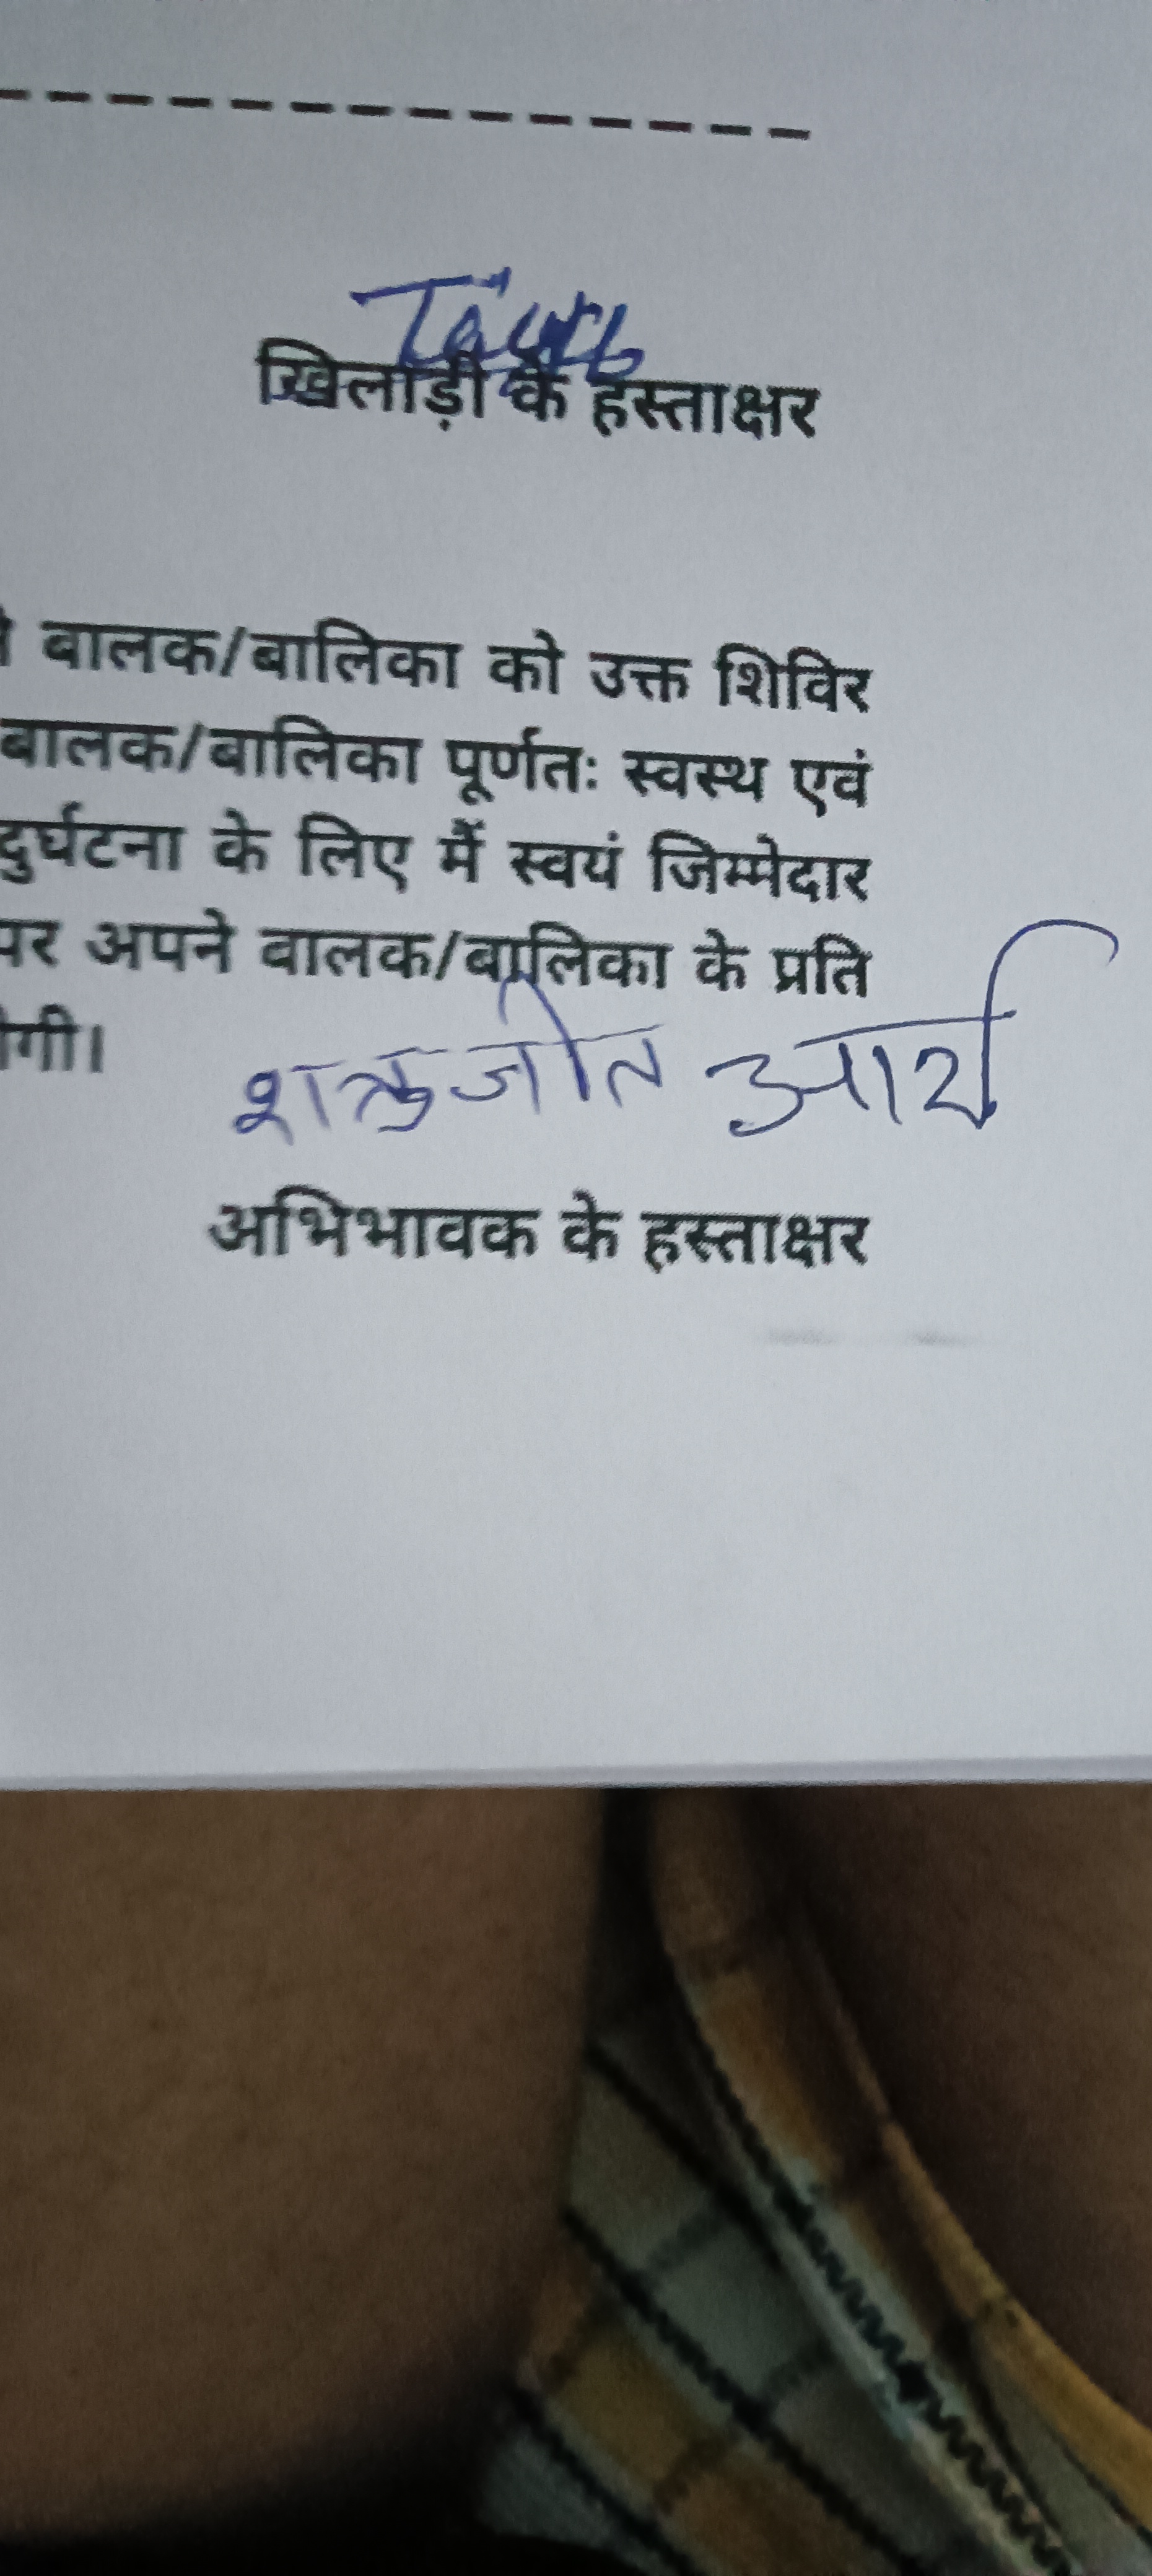 खिलाड़ी के हस्ताक्षर
बालक/बालिका को उक्त शिविर
बालक/बालिका पूर्णतः स्वस्थ एवं
दुर्घटना के लिए मैं स्वयं जिम्मेदार
पर अपने बालक/बालिका के प्रति
शत्रुजीत आर्य
अभिभावक के हस्ताक्षर